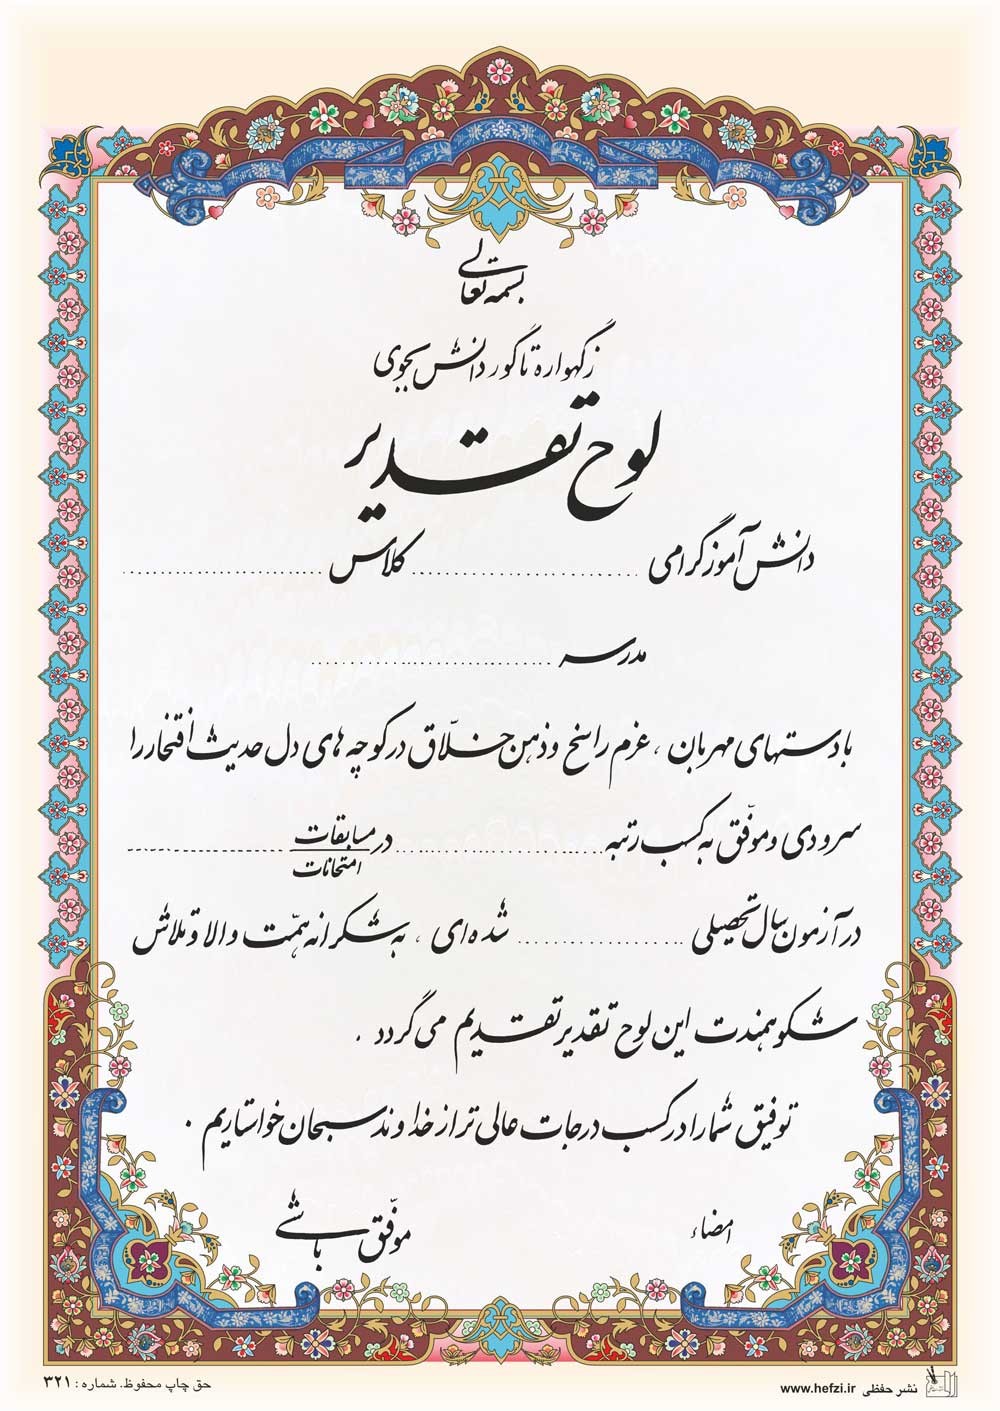 بسمه تعالی
زگهواره تا گور دانش بجوی
لوح تقدیر
دانش آموز گرامی .......................... کلاس ..........................
مدرسه ..........................
با دستهای مهربان ، عزم راسخ و ذهن خلّاق در کوچه های دل حدیث افتخار را
سرودی و موفّق به کسب رتبه .......................... در مسابقات ..........................
امتحانات
در آزمون سال تحصیلی .......................... شده ای ، به شکرانه همّت والا و تلاش
شکوهمندت این لوح تقدیر تقدیم می گردد .
توفیق شما را در کسب درجات عالی تر از خداوند سبحان خواستاریم .
امضاء
موفّق باشی
نشر حفظی www.hefzi.ir
حق چاپ محفوظ. شماره : ۳۲۱